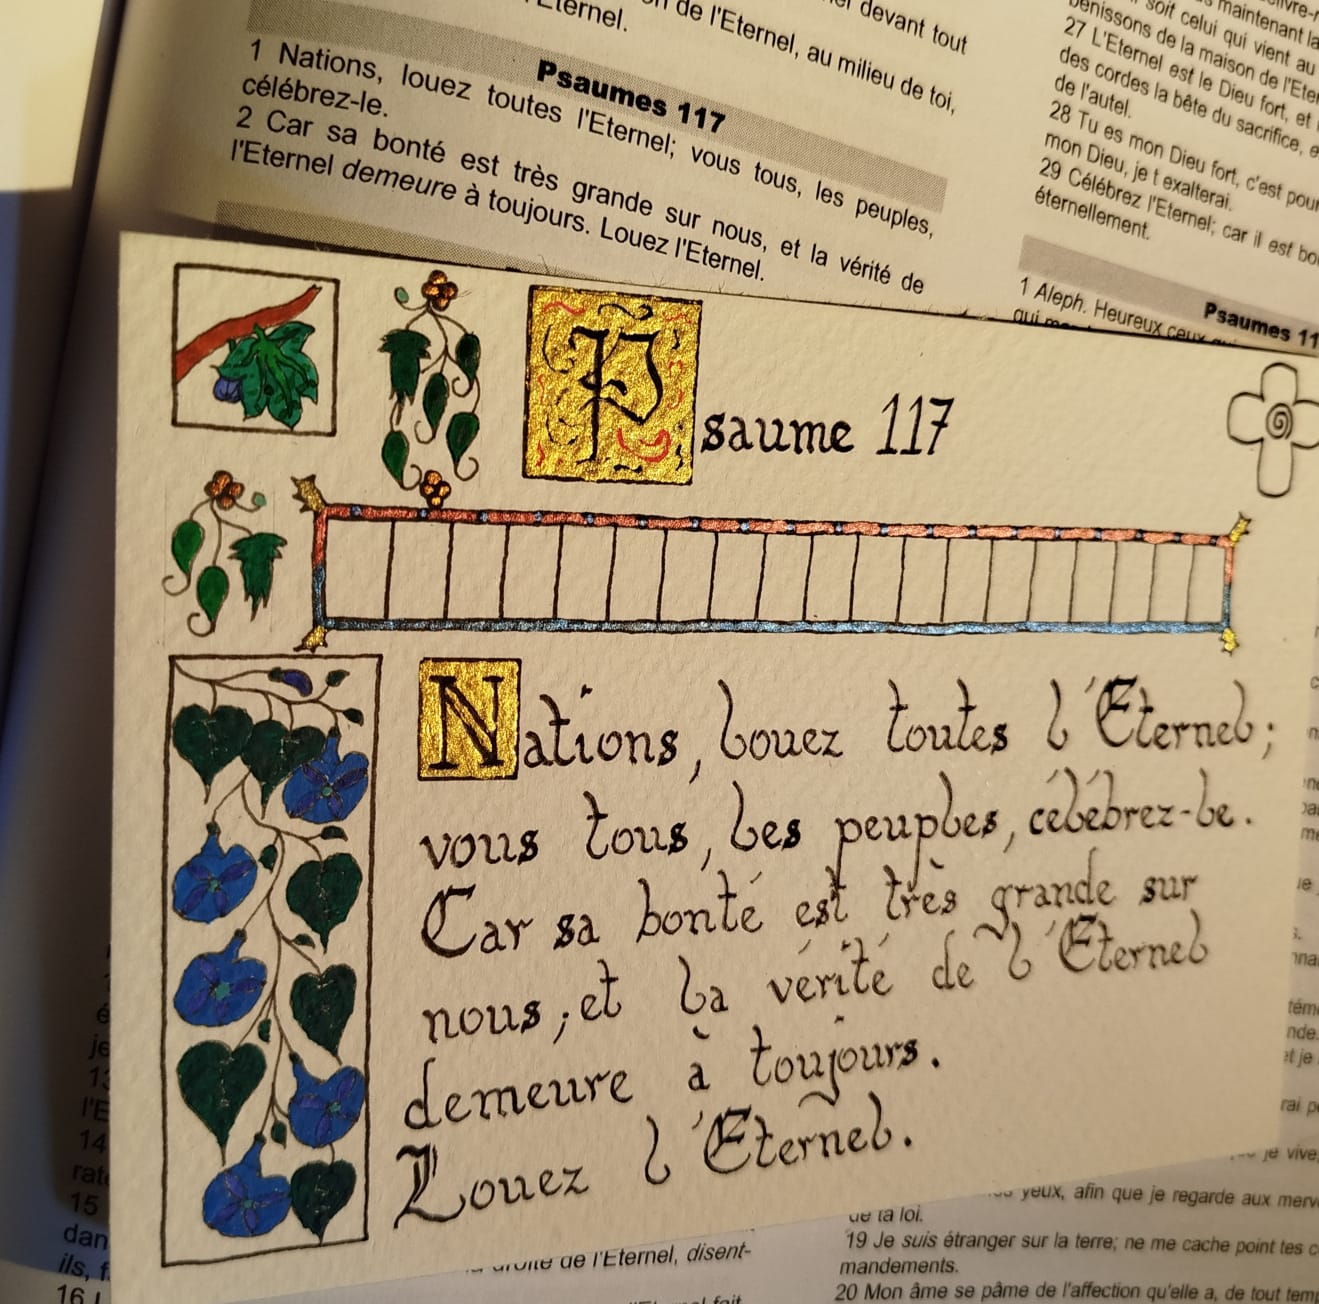 l'Eternel.
de l'Eternel, au milieu de toi,
devant tout
Psaumes 117
1 Nations, louez toutes l'Eternel; vous tous, les peuples,
célébrez-le.
2 Car sa bonté est très grande sur nous, et la vérité de
l'Eternel demeure à toujours. Louez l'Eternel.
maintenant la
soit celui qui vient au
bénissons de la maison de l'Eter
27 L'Eternel est le Dieu fort, et
des cordes la bête du sacrifice, e
de l'autel.
28 Tu es mon Dieu fort, c'est pour
mon Dieu, je t exalterai.
29 Célébrez l'Eternel; car il est bo
éternellement.
Psaumes 11
1 Aleph. Heureux ceux
qui
Psaume 117
Nations, louez toutes l'Éternel;
vous tous, les peuples, célébrez-le.
Car sa bonté est très grande sur
nous, et la vérité de l'Éternel
demeure à toujours.
Louez l'Éternel.
je
13
l'E
14
15
dan
ils, f
16
de l'Eternel, disent-
fait
tém
nde.
et je
rai p
je vive,
yeux, afin que je regarde aux merv
de ta loi.
19 Je suis étranger sur la terre; ne me cache point tes c
mandements.
20 Mon âme se pâme de l'affection qu'elle a, de tout tem